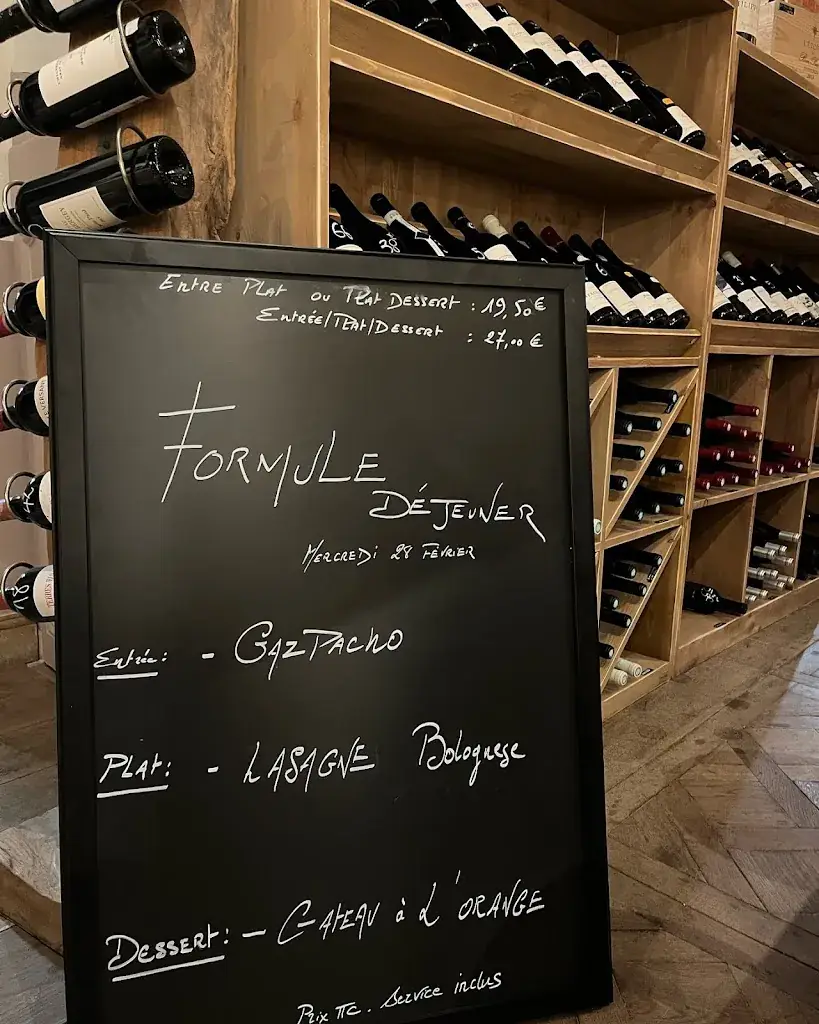 Entre Plat ou Plat Dessert : 19,50€
Entrée/Plat/Dessert : 27,00 €
Formule
Déjeuner
Mercredi 28 Février
Entrée: - Gazpacho
Plat: - Lasagne Bolognese
Dessert: - Gateau à l'orange
Prix TTC. Service inclus